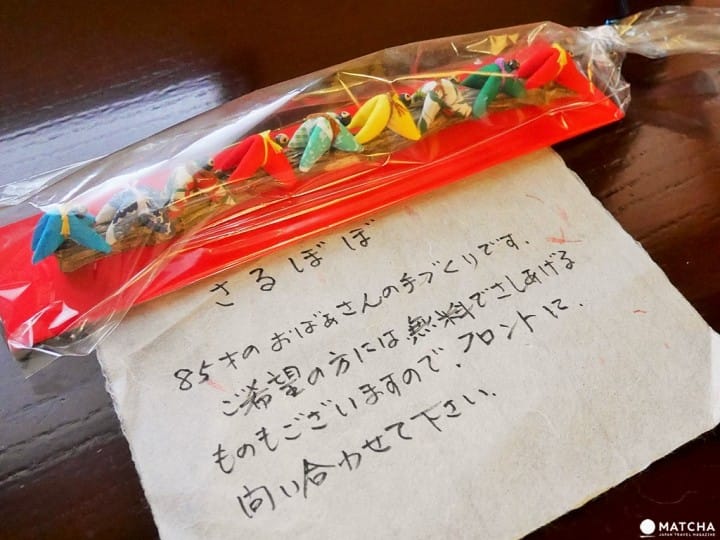 さるぼぼ
85才のおばぁさんの手づくりです.
ご希望の方には無料でさしあげる
ものもございますので、フロントに、
問い合わせて下さい.
MATCHA
JAPAN TRAVEL MAGAZINE